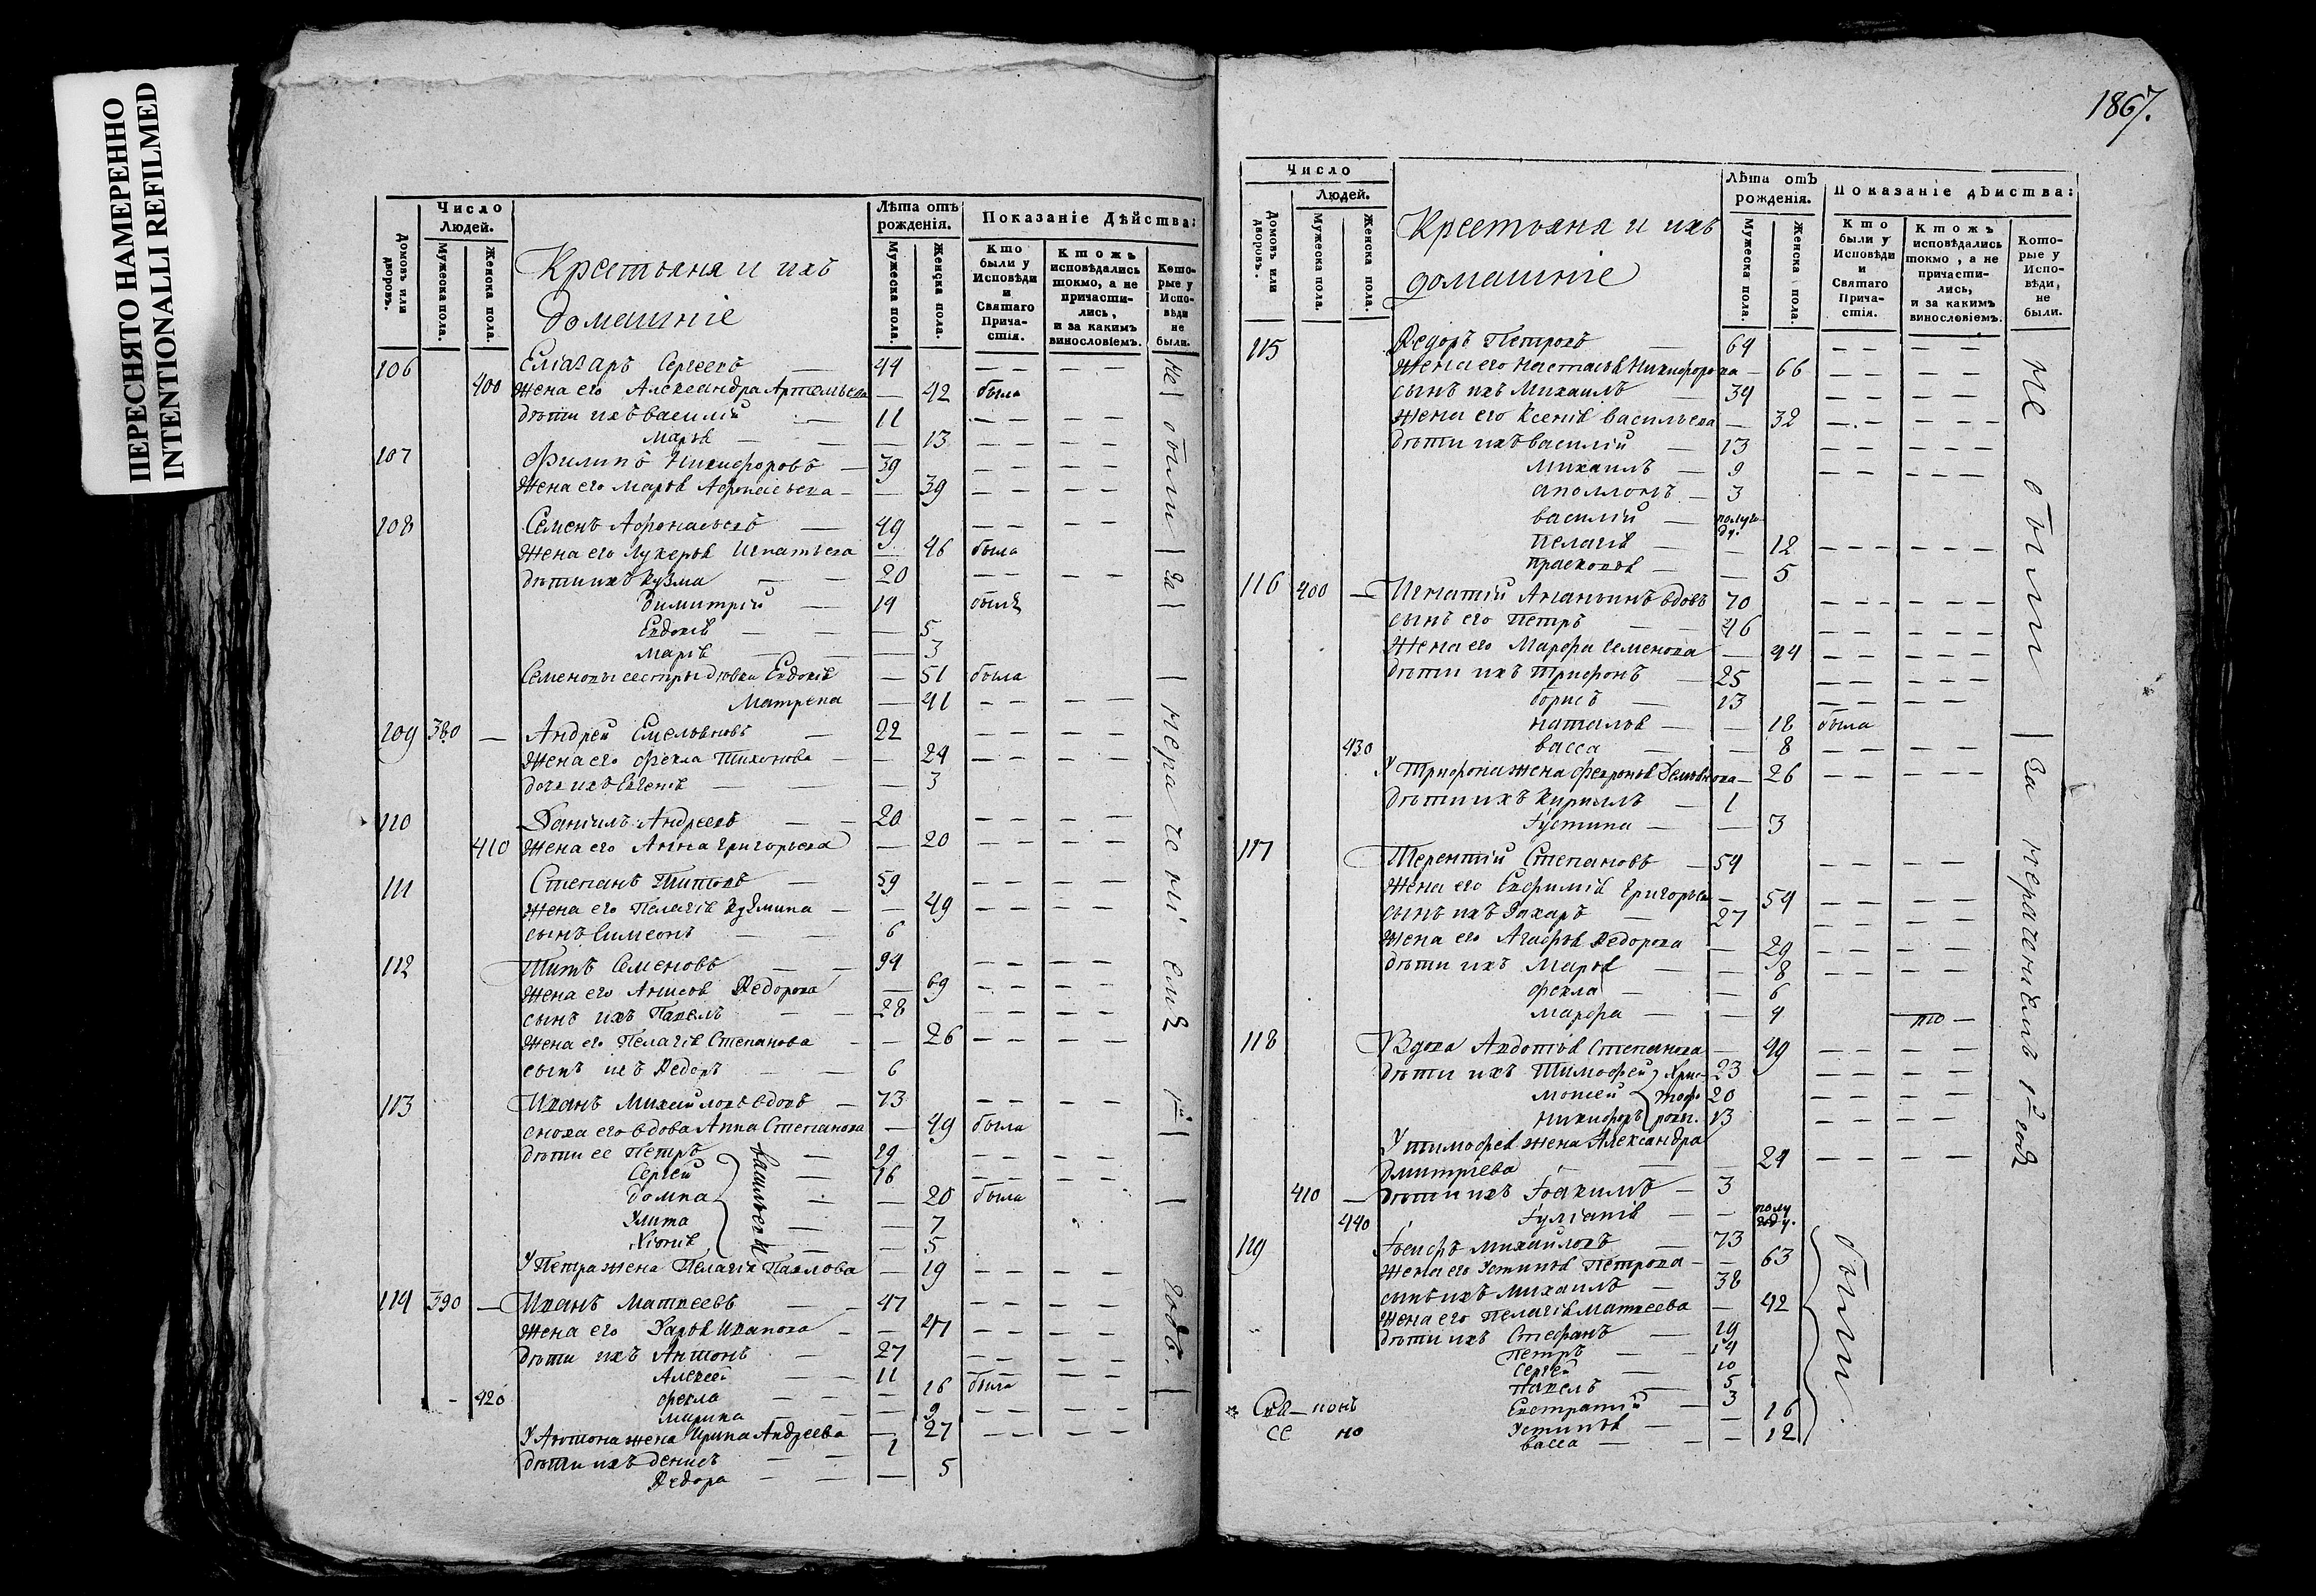 ПЕРЕСНЯТО НАМЕРЕННО
INTENTIONALLI REFILMED
Число
Людей.
Домовъ или дворовъ.
Мужеска пола.
Женска пола.
Крестьяня и ихъ
домашніе
Лѣта отъ
рожденія.
Мужеска пола.
Женска пола.
Показаніе Дѣйства:
Кто были у Исповѣди и Святаго Прича-стія.
Ктожъ исповѣдались токмо, а не причасти-лись, и за какимъ винословіемъ.
Кото-рые у Испо-вѣди не были.
106 Елїазаръ Сергеевъ — 44
400 Жена его Александра Артемьева — 42 была
дѣти ихъ василїй — 11
Марѳа — — 13
107 Филипъ Никифоровъ — 39
Жена его Марѳа Афонасьева — — 39
108 Семенъ Афонасьевъ — 49
Жена его Лукерья Игнатьева — 46 была
дѣти ихъ Кузма — — 20
Димитрїй — 19 былъ
Евдокїя — — 5
Марїя — — 3
Семеновы сестры дѣвки Евдокїя — 51 была
Матрена — 41
109 380 — Андрей Емельяновъ — 22
Жена его Фекла Тихонова — — 24
дочь ихъ Евгенїя — — 3
110 Данїилъ Андреевъ — — 20
410 Жена его Анна Григорьева — 20
111 Степанъ Титовъ — 59
Жена его Пелагїя Кузмина — — 49
сынъ Симеонъ — — 6
112 Титъ Семеновъ — — 94
Жена его Анисья Ѳедорова — 69
сынъ ихъ Павелъ — — 28
Жена его Пелагїя Степанова — — 26
сынъ ихъ Ѳедоръ — — 6
113 Иванъ Михайловъ вдовъ — 73
сноха его вдова Анна Степанова — 49 была
дѣти ее Петръ — 29
Сергей — 16
домна — — 20 была
Улита — — 7
Хїонїя — — 5
васильевы
У Петра жена Пелагїя Павлова — 19
114 390 — Иванъ Матвеевъ — — 47
Жена его Дарья Иванова — — 47
дѣти ихъ Антонъ — 27
Алексей — — 11
420 фекла — — 16 была
марина — — 9
У Антона жена Ирина Андреева — 27
дѣти ихъ денисъ — — 1
Ѳедора — — — 5
Не были за нераченіемъ 1й годъ.
1867.
Число
Людей.
Домовъ или дворовъ.
Мужеска пола.
Женска пола.
Крестьяня и ихъ
домашнїе
Лѣта отъ
рожденія.
Мужеска пола.
Женска пола.
Показаніе дѣйства:
Кто были у Исповѣди и Святаго Прича-стія.
Ктожъ исповѣдались токмо, а не причасти-лись, и за какимъ винословіемъ.
Кото-рые у Испо-вѣди, не были.
115 Ѳедоръ Петровъ — 64
Жена его Настасья Никифорова — 66
сынъ ихъ Михаилъ — 34
Жена его Ксенїя васильева — 32
дѣти ихъ василїй — 13
михаилъ — 9
аполлонъ — 3
василїй — полуго-ду.
Пелагїя — — 12
прасковья — — 5
116 400 — Игнатїй Ананьинъ вдовъ 70
сынъ его Петръ — — 46
Жена его Марфа Семенова — 44
дѣти ихъ Трифонъ — 25
борисъ — 13
наталья — — 18 была
430 васса — — 8
У Трифона жена Февронья Демьянова — 26
дѣти ихъ Кирилъ — 1
Іустина — — 3
117 Терентїй Степановъ — 54
Жена его Евфимїя Григорьева — 54
сынъ ихъ Захаръ — 27
Жена его Агафья Ѳедорова — 29
дѣти ихъ Марья — — 8
фекла — — 6
марфа — — 4
118 Вдова Авдотья Степанова — 49
дѣти ихъ Тимофей 23
моисей 20
никифоръ 13
Христофоровы.
У тимофея жена Александра
дмитрїева — — 24
410 — дѣти ихъ Іоакимъ — 3
440 Іулїанїя — — полугоду.
119 Іосифъ михайловъ — 73
Жена его Устинья Петрова — — 63
сынъ ихъ михаилъ — 38
Жена его Пелагїя матвеева — 42
дѣти ихъ Стефанъ — 19
Петръ — 14
Сергей — 10
Павелъ — 5
Евстратїй — 3
Устинья — — 16
васса — — 12
не были за нераченїемъ 1й годъ
были.